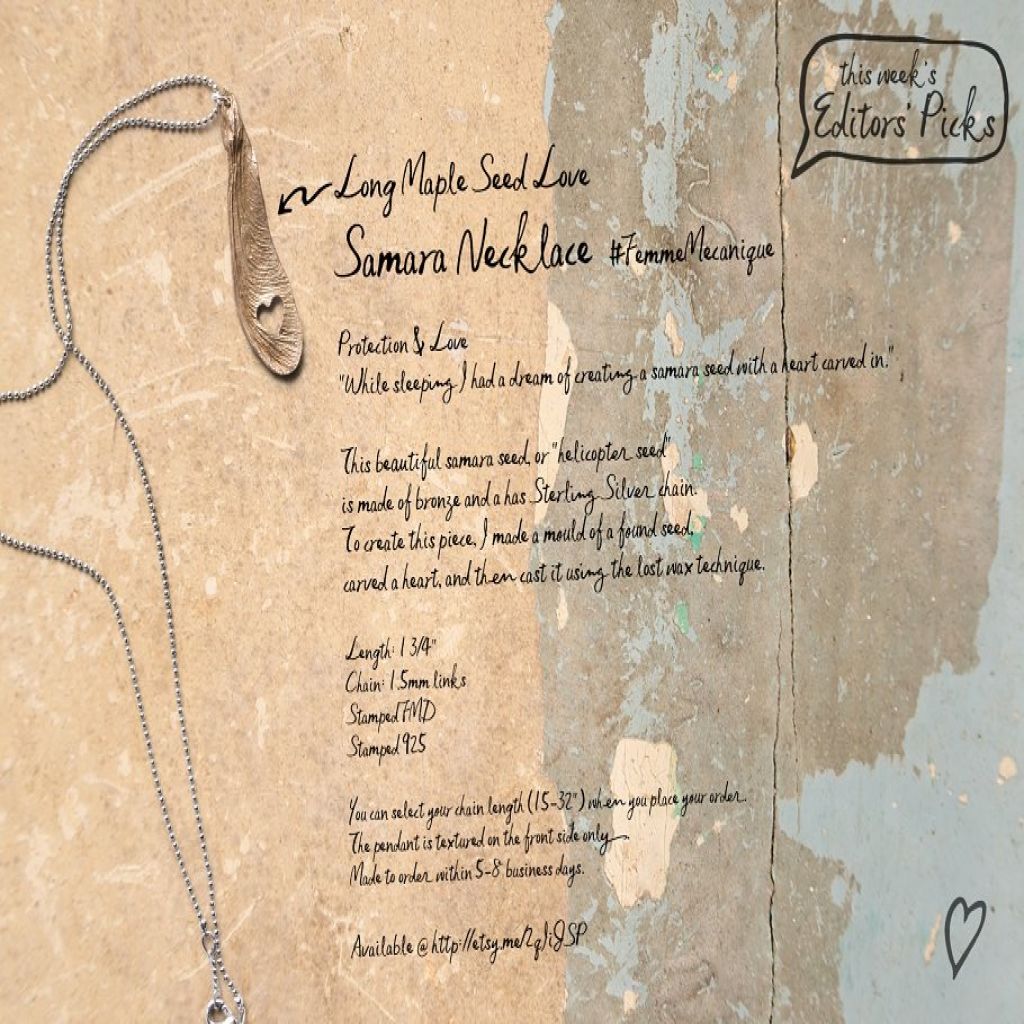 this week's
Editors' Picks
Long Maple Seed Love
Samara Necklace #FemmeMecanique
Protection & Love
"While sleeping I had a dream of creating a samara seed with a heart carved in."
This beautiful samara seed, or "helicopter seed"
is made of bronze and a has Sterling Silver chain.
To create this piece, I made a mould of a found seed,
carved a heart, and then cast it using the lost wax technique.
Length: 1 3/4"
Chain: 1.5mm links
Stamped FMD
Stamped 925
You can select your chain length (15-32") when you place your order.
The pendant is textured on the front side only.
Made to order within 5-8 business days.
Available @